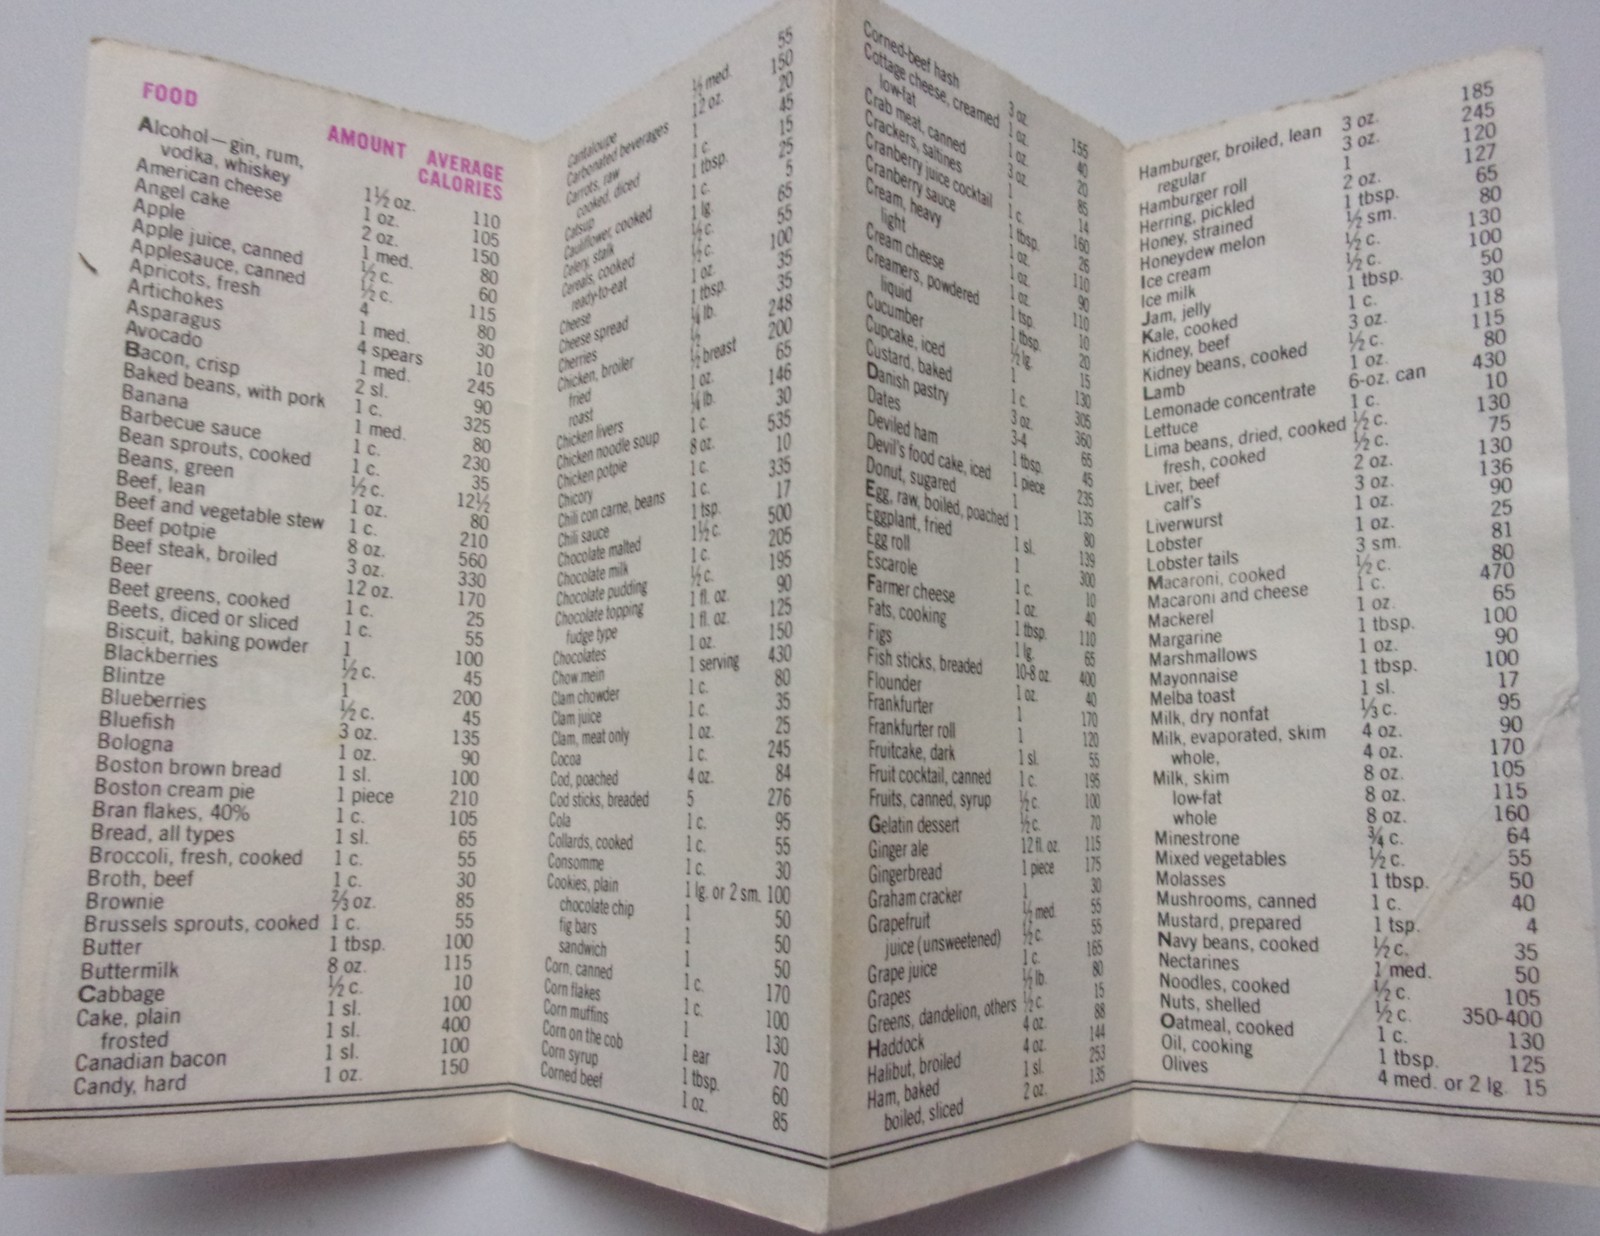 FOOD AMOUNT AVERAGE
CALORIES
Alcohol—gin, rum,
vodka, whiskey 1½ oz. 110
American cheese 1 oz. 105
Angel cake 2 oz. 150
Apple 1 med. 80
Apple juice, canned ½ c. 60
Applesauce, canned ½ c. 115
Apricots, fresh 4 80
Artichokes 1 med. 30
Asparagus 4 spears 10
Avocado 1 med. 245
Bacon, crisp 2 sl. 90
Baked beans, with pork 1 c. 325
Banana 1 med. 80
Barbecue sauce 1 c. 230
Bean sprouts, cooked 1 c. 35
Beans, green ½ c. 12½
Beef, lean 1 oz. 80
Beef and vegetable stew 1 c. 210
Beef potpie 8 oz. 560
Beef steak, broiled 3 oz. 330
Beer 12 oz. 170
Beet greens, cooked 1 c. 25
Beets, diced or sliced 1 c. 55
Biscuit, baking powder 1 100
Blackberries ½ c. 45
Blintze 1 200
Blueberries ½ c. 45
Bluefish 3 oz. 135
Bologna 1 oz. 90
Boston brown bread 1 sl. 100
Boston cream pie 1 piece 210
Bran flakes, 40% 1 c. 105
Bread, all types 1 sl. 65
Broccoli, fresh, cooked 1 c. 55
Broth, beef 1 c. 30
Brownie ⅔ oz. 85
Brussels sprouts, cooked 1 c. 55
Butter 1 tbsp. 100
Buttermilk 8 oz. 115
Cabbage ½ c. 10
Cake, plain 1 sl. 100
frosted 1 sl. 400
Canadian bacon 1 sl. 100
Candy, hard 1 oz. 150
Cantaloupe ½ med. 55
Carbonated beverages 12 oz. 150
Carrots, raw 1 20
cooked, diced 1 c. 45
Catsup 1 tbsp. 15
Cauliflower, cooked 1 c. 25
Celery, stalk 1 lg. 5
Cereals, cooked ½ c. 65
ready-to-eat ½ c. 55
Cheese 1 oz. 100
Cheese spread 1 tbsp. 35
Cherries ¼ lb. 35
Chicken, broiler ½ 248
fried ½ breast 200
roast 1 oz. 65
Chicken livers ¼ lb. 146
Chicken noodle soup 1 c. 30
Chicken potpie 8 oz. 535
Chicory 1 c. 10
Chili con carne, beans 1 c. 335
Chili sauce 1 tsp. 17
Chocolate malted 1½ c. 500
Chocolate milk 1 c. 205
Chocolate pudding ½ c. 195
Chocolate topping 1 fl. oz. 90
fudge type 1 fl. oz. 125
Chocolates 1 oz. 150
Chow mein 1 serving 430
Clam chowder 1 c. 80
Clam juice 1 c. 35
Clam, meat only 1 oz. 25
Cocoa 1 c. 245
Cod, poached 4 oz. 84
Cod sticks, breaded 5 276
Cola 1 c. 95
Collards, cooked 1 c. 55
Consomme 1 c. 30
Cookies, plain 1 lg. or 2 sm. 100
chocolate chip 1 50
fig bars 1 50
sandwich 1 50
Corn, canned 1 c. 170
Corn flakes 1 c. 100
Corn muffins 1 130
Corn on the cob 1 ear 70
Corn syrup 1 tbsp. 60
Corned beef 1 oz. 85
Corned-beef hash 3 oz. 155
Cottage cheese, creamed 1 oz. 40
low-fat 1 oz. 20
Crab meat, canned 3 oz. 85
Crackers, saltines 1 14
Cranberry juice cocktail 1 c. 160
Cranberry sauce 1 tbsp. 26
Cream, heavy 1 oz. 110
light 1 oz. 90
Cream cheese 1 oz. 110
Creamers, powdered 1 tsp. 10
liquid 1 tbsp. 20
Cucumber ½ lg. 15
Cupcake, iced 1 130
Custard, baked 1 c. 305
Danish pastry 3 oz. 360
Dates 3-4 65
Deviled ham 1 tbsp. 45
Devil's food cake, iced 1 piece 235
Donut, sugared 1 135
Egg, raw, boiled, poached 1 80
Eggplant, fried 1 sl. 139
Egg roll 1 300
Escarole 1 c. 10
Farmer cheese 1 oz. 40
Fats, cooking 1 tbsp. 110
Figs 1 lg. 65
Fish sticks, breaded 10-8 oz. 400
Flounder 1 oz. 40
Frankfurter 1 170
Frankfurter roll 1 120
Fruitcake, dark 1 sl. 55
Fruit cocktail, canned 1 c. 195
Fruits, canned, syrup ½ c. 100
Gelatin dessert ½ c. 70
Ginger ale 12 fl. oz. 115
Gingerbread 1 piece 175
Graham cracker 1 30
Grapefruit ½ med. 55
juice (unsweetened) ½ c. 55
Grape juice 1 c. 165
Grapes ½ lb. 80
Greens, dandelion, others ½ c. 15
Haddock 4 oz. 88
Halibut, broiled 4 oz. 144
Ham, baked 1 sl. 253
boiled, sliced 2 oz. 135
Hamburger, broiled, lean 3 oz. 185
regular 3 oz. 245
Hamburger roll 1 120
Herring, pickled 2 oz. 127
Honey, strained 1 tbsp. 65
Honeydew melon ½ sm. 80
Ice cream ½ c. 130
Ice milk ½ c. 100
Jam, jelly 1 tbsp. 50
Kale, cooked 1 c. 30
Kidney, beef 3 oz. 118
Kidney beans, cooked ½ c. 115
Lamb 1 oz. 80
Lemonade concentrate 6-oz. can 430
Lettuce 1 c. 10
Lima beans, dried, cooked ½ c. 130
fresh, cooked ½ c. 75
Liver, beef 2 oz. 130
calf's 3 oz. 136
Liverwurst 1 oz. 90
Lobster 1 oz. 25
Lobster tails 3 sm. 81
Macaroni, cooked ½ c. 80
Macaroni and cheese 1 c. 470
Mackerel 1 oz. 65
Margarine 1 tbsp. 100
Marshmallows 1 oz. 90
Mayonnaise 1 tbsp. 100
Melba toast 1 sl. 17
Milk, dry nonfat ⅓ c. 95
Milk, evaporated, skim 4 oz. 90
whole, 4 oz. 170
Milk, skim 8 oz. 105
low-fat 8 oz. 115
whole 8 oz. 160
Minestrone ¾ c. 64
Mixed vegetables ½ c. 55
Molasses 1 tbsp. 50
Mushrooms, canned 1 c. 40
Mustard, prepared 1 tsp. 4
Navy beans, cooked ½ c. 35
Nectarines 1 med. 50
Noodles, cooked ½ c. 105
Nuts, shelled ½ c. 350-400
Oatmeal, cooked 1 c. 130
Oil, cooking 1 tbsp. 125
Olives 4 med. or 2 lg. 15